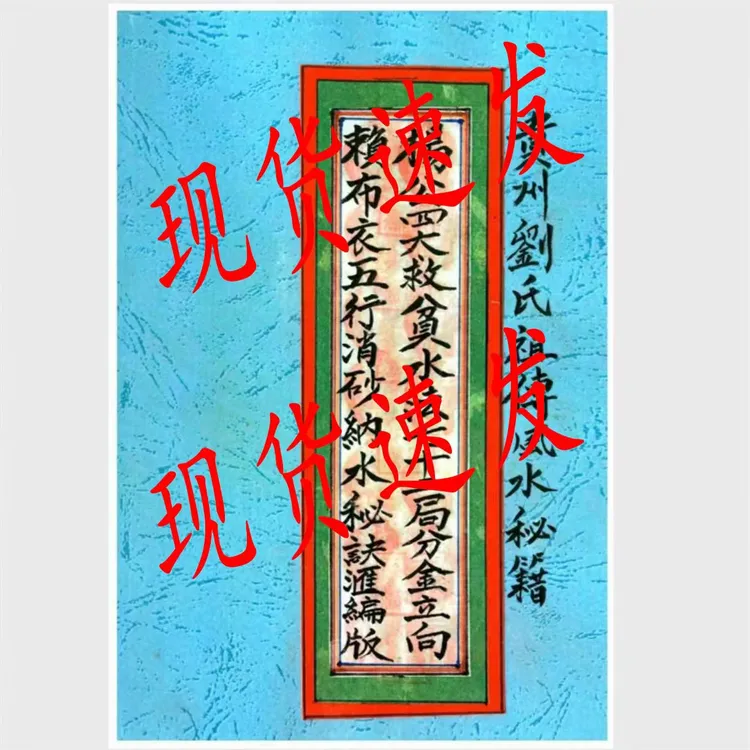 州劉氏祖傳風水秘籍
楊公四大救貧水局分金立向
賴布衣五行消砂納水秘訣滙編版
现货速发
现货速发